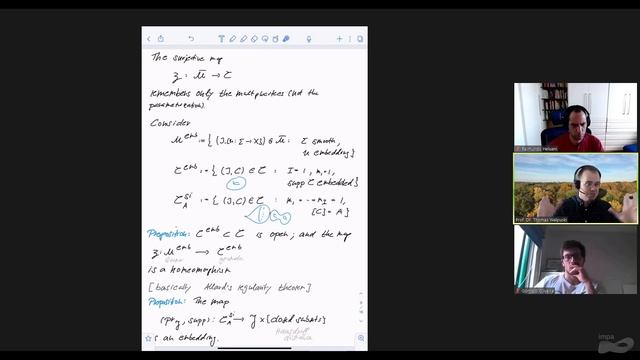 The surjective map
z : M̄ → C
remembers only the multiplicities (not the
parametrization).
Consider
M^emb := { (J,[u: Σ → X]) ∈ M̄ : Σ smooth,
u embedding}
C^emb := { (J,C) ∈ C : I = 1, m₁=1,
supp C embedded}
C_A^si := { (J,C) ∈ C : m₁ = ··· = m_I = 1,
[C] = A }
Proposition: C^emb ⊂ C is open, and the map
z : M^emb → C^emb
is a homeomorphism
[basically Allard's regularity theorem]
Proposition: The map
(pr_J, supp) : C_A^si → J × {closed subsets}
Hausdorff
distance
is an embedding.
Prof. Dr. Thomas Walpuski
impa